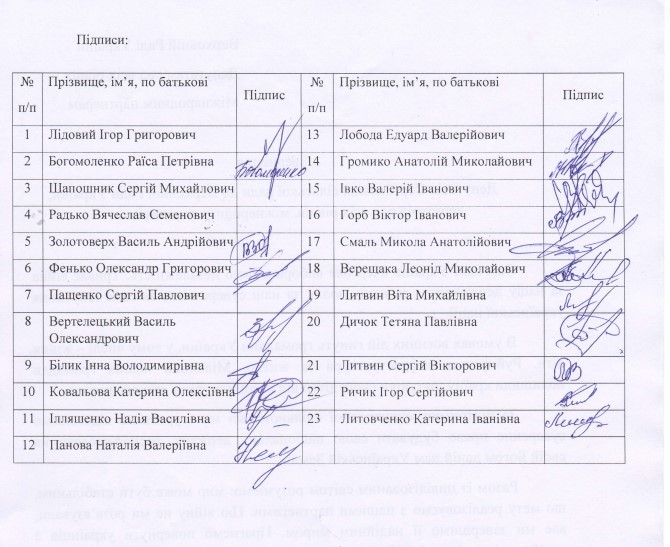 Підписи:
№ Прізвище, ім’я, по батькові Підпис № Прізвище, ім’я, по батькові Підпис
п/п п/п
1 Лідовий Ігор Григорович 13 Лобода Едуард Валерійович
2 Богомоленко Раїса Петрівна Богомоленко 14 Громико Анатолій Миколайович
3 Шапошник Сергій Михайлович 15 Івко Валерій Іванович
4 Радько Вячеслав Семенович 16 Горб Віктор Іванович
5 Золотоверх Василь Андрійович 17 Смаль Микола Анатолійович
6 Фенько Олександр Григорович 18 Верещака Леонід Миколайович
7 Пащенко Сергій Павлович 19 Литвин Віта Михайлівна
8 Вертелецький Василь 20 Дичок Тетяна Павлівна
Олександрович
9 Білик Інна Володимирівна 21 Литвин Сергій Вікторович
10 Ковальова Катерина Олексіївна 22 Ричик Ігор Сергійович
11 Ілляшенко Надія Василівна 23 Литовченко Катерина Іванівна
12 Панова Наталія Валеріївна